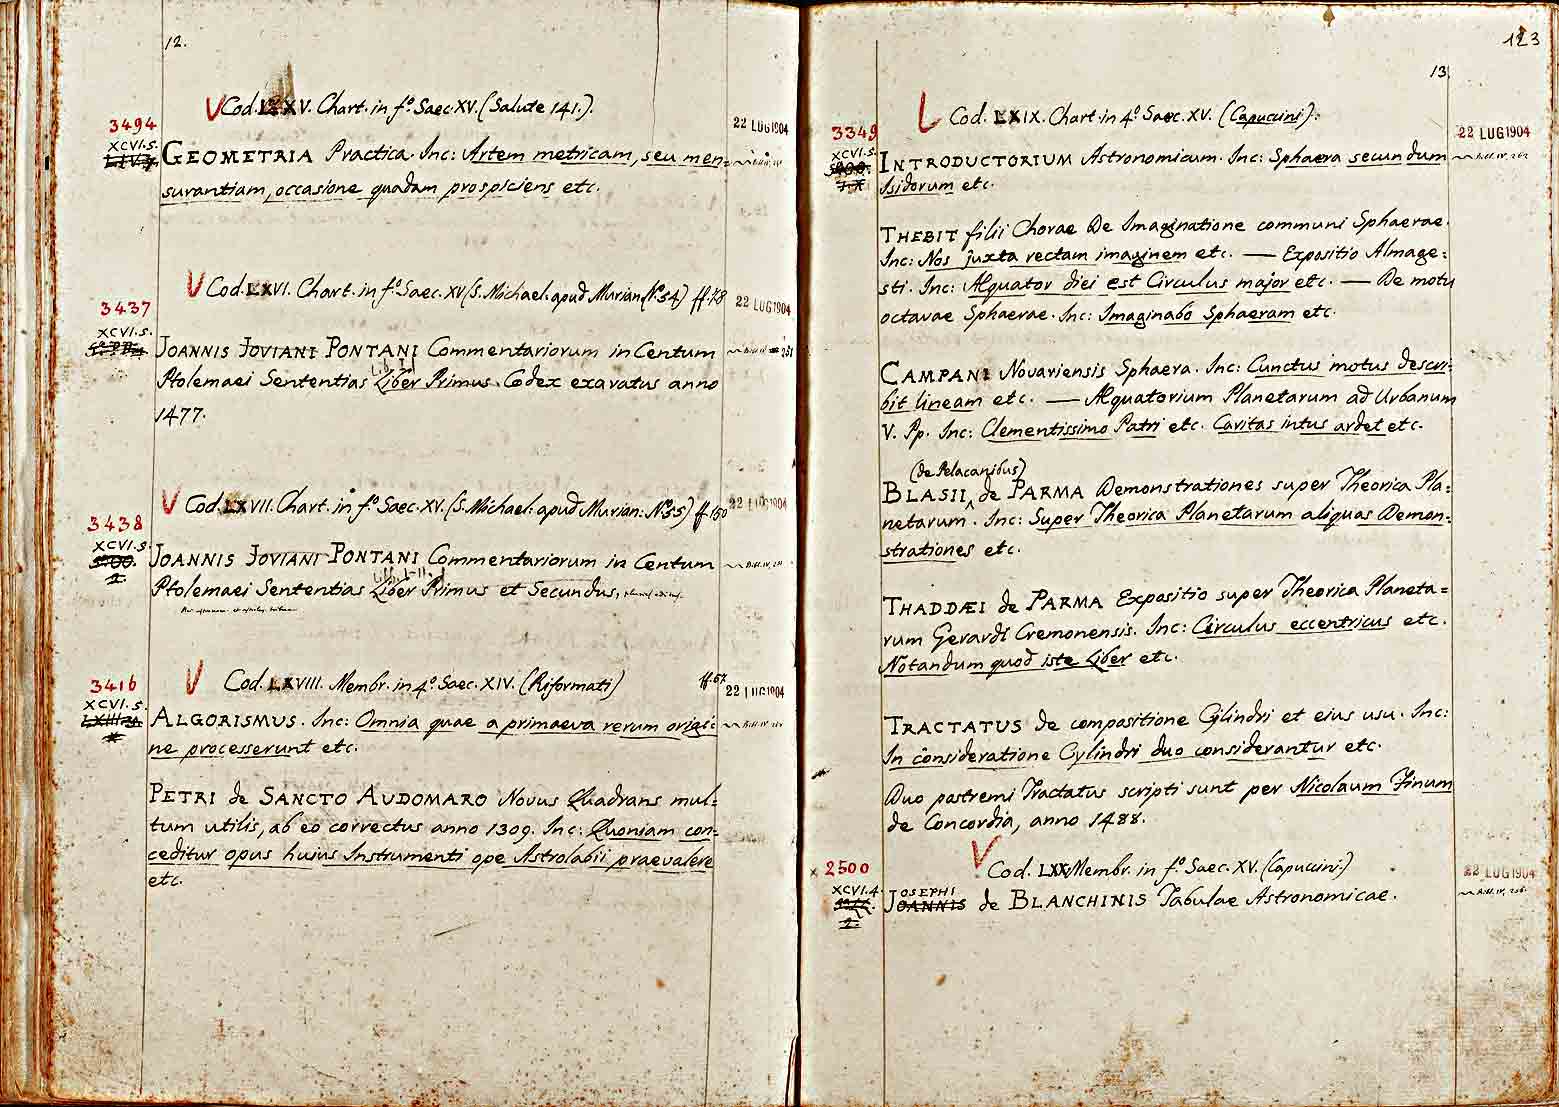 12.
V Cod. LXXV. Chart. in fº. Saec. XV. (Salute 141.).
3494
22 LUG 1904
XCVI. 5.
GEOMETRIA Practica. Inc: Artem metricam, seu men=
surantiam, occasione quadam prospiciens etc.
V Cod. LXXVI. Chart. in fº. Saec. XV (S. Michael. apud Murian. Nº. 54) ff. 78
3437
22 LUG 1904
XCVI. 5.
JOANNIS JOVIANI PONTANI Commentariorum in Centum
Lib. I.
Ptolemaei Sententias Liber Primus. Codex exaratus anno
1477.
V Cod. LXXVII. Chart. in fº. Saec. XV. (S. Michael. apud Murian: Nº. 55) ff. 150
3438
22 LUG 1904
XCVI. 5.
JOANNIS JOVIANI PONTANI Commentariorum in Centum
Libb. I-II.
Ptolemaei Sententias Liber Primus et Secundus,
V Cod. LXXVIII. Membr. in 4º. Saec. XIV. (Riformati) ff. 57.
3416
22 LUG 1904
XCVI. 5.
ALGORISMUS. Inc: Omnia quae a primaeva rerum origi=
ne processerunt etc.
PETRI de SANCTO AUDOMARO Novus Quadrans mul=
tum utilis, ab eo correctus anno 1309. Inc: Quoniam con=
ceditur opus huius Instrumenti ope Astrolabii praevalere
etc.
123
13.
L Cod. LXXIX. Chart. in 4º. Saec. XV. (Capuccini).
3349
22 LUG 1904
XCVI. 5.
INTRODUCTORIUM Astronomicum. Inc: Sphaera secundum
Isidorum etc.
THEBIT filii Chorae De Imaginatione communi Sphaerae.
Inc: Nos juxta rectam imaginem etc. — Expositio Almage=
sti. Inc: Æquator diei est Circulus major etc. — De motu
octavae Sphaerae. Inc: Imaginabo Sphaeram etc.
CAMPANI Novariensis Sphaera. Inc: Cunctus motus descri=
bit lineam etc. — Æquatorium Planetarum ad Urbanum
V. Pp. Inc: Clementissimo Patri etc. Caritas intus ardet etc.
(de Pelacanibus)
BLASII de PARMA Demonstrationes super Theorica Pla=
netarum. Inc: Super Theorica Planetarum aliquas Demon=
strationes etc.
THADDÆI de PARMA Expositio super Theorica Planeta=
rum Gerardi Cremonensis. Inc: Circulus eccentricus etc.
Notandum quod iste Liber etc.
TRACTATUS de compositione Cylindri et eius usu. Inc:
In consideratione Cylindri duo considerantur etc.
Duo postremi Tractatus scripti sunt per Nicolaum Finum
de Concordia, anno 1488.
V Cod. LXXX Membr. in fº. Saec. XV. (Capuccini)
x 2500
22 LUG 1904
XCVI. 4.
JOSEPHI
JOANNIS de BLANCHINIS Tabulae Astronomicae.